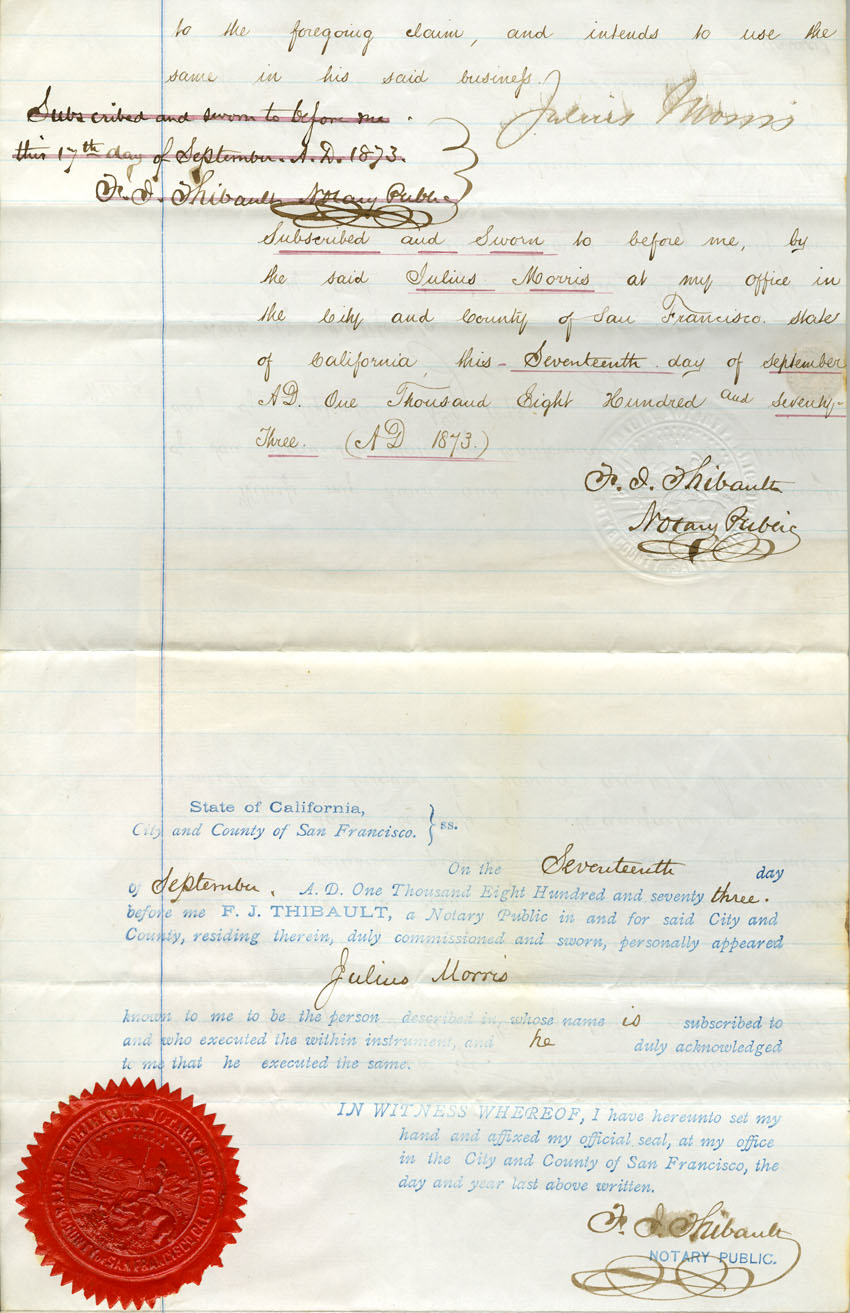 to the foregoing claim, and intends to use the
same in his said business.
Julius Morris
Subscribed and sworn to before me
this 17th day of September A.D. 1873.
F. J. Thibault Notary Public
Subscribed and Sworn to before me, by
the said Julius Morris at my office in
the City and County of San Francisco. state
of California, this - Seventeenth day of september
AD. One Thousand Eight Hundred and seventy-
Three. (AD 1873.)
F. J. Thibault
Notary Public
State of California,
City and County of San Francisco. } ss.
On the Seventeenth day
of September, A. D. One Thousand Eight Hundred and seventy three.
before me F. J. THIBAULT, a Notary Public in and for said City and
County, residing therein, duly commissioned and sworn, personally appeared
Julius Morris
known to me to be the person described in, whose name is subscribed to
and who executed the within instrument, and he duly acknowledged
to me that he executed the same.
IN WITNESS WHEREOF, I have hereunto set my
hand and affixed my official seal, at my office
in the City and County of San Francisco, the
day and year last above written.
F. J. Thibault
NOTARY PUBLIC.
F. J. THIBAULT, NOTARY PUBLIC
CITY & COUNTY OF SAN FRANCISCO CAL.